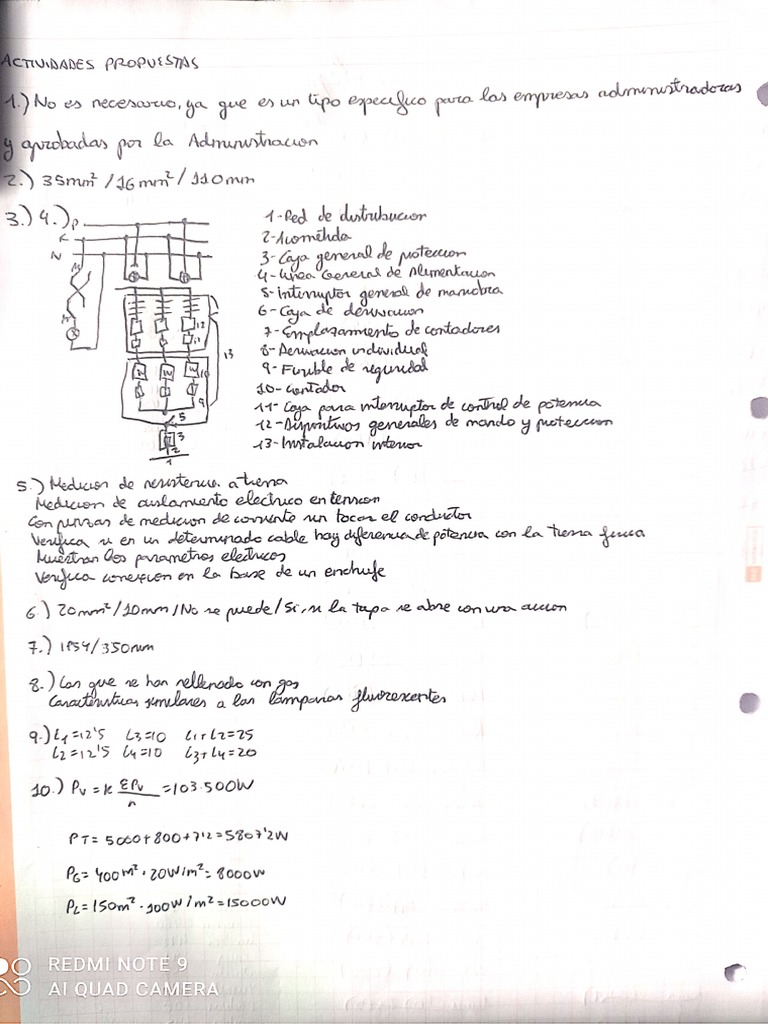 ACTIVIDADES PROPUESTAS
1.) No es necesario, ya que es un tipo especifico para las empresas administradoras
y aprobadas por la Administracion
2.) 35mm² / 16mm² / 110mm
3.) 4.)
F
N
1-Red de distribucion
2-Acometida
3-Caja general de proteccion
4-Linea General de Alimentacion
5-Interruptor general de maniobra
6-Caja de derivacion
7-Emplazamiento de contadores
8-Derivacion individual
9-Fusible de seguridad
10-Contador
11-Caja para interruptor de control de potencia
12-Dispositivos generales de mando y proteccion
13-Instalacion interior
12
11
13
10
9
5
3
2
1
5.) Medicion de resistencia a tierra
Medicion de aislamiento electrico en tension
Con pinzas de medicion de corriente sin tocar el conductor
Verifica si en un determinado cable hay diferencia de potencia con la tierra fisica
Muestran los parametros electricos
Verifica conexion en la base de un enchufe
6.) 20mm² / 10mm / No se puede / Si, si la tapa se abre con una accion
7.) IP54 / 350mm
8.) Los que se han rellenado con gas
Caracteristicas similares a las lamparas fluorescentes
9.) L1=12'5 L3=10 L1+L2=25
L2=12'5 L4=10 L3+L4=20
10.) Pv = k ΣPv/n = 103.500W
PT = 5000+800+7'2 = 5807'2W
PG = 400m² · 20W/m² = 8000W
PL = 150m² · 100W/m² = 15000W
REDMI NOTE 9
AI QUAD CAMERA